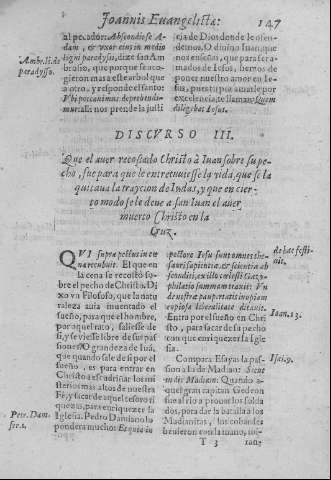 Joannis Euangelista:
147
al pecador: Abscondi se A-
dam, & vxor eius in medio
ligni paradysi, dize san Am
brosio, que porque se aco-
gieron mas a este arbol que
a otro, y responde el santo:
Vbi peccauimus deprehendi-
mur: alli nos prende la justi
Ambr. li. de
paradysso.
cia de Dios donde le ofen-
demos. O diuino Iuan, que
nos enseñas, que para ser a-
mados de Iesus, hemos de
poner nuestro amor en Ie-
sus, pues tu por amarle por
excelencia, te llaman: Quem
diligebat Iesus.
DISCVRSO III.
Que el auer recostado Christo à Iuan sobre su pe-
cho, fue para que le entretuuiesse la vida, que se la
quitaua la trayción de Iudas, y que en cier-
to modo se le deue a san Iuan el auer
muerto Christo en la
Cruz.
QVI supra pectus in cœ
na recubuit. El que en
la cena se recostò so-
bre el pecho de Christo. Di
xo vn Filosofo, que la natu
raleza auia inuentado el
sueño, para que el hombre,
por aquel rato, saliesse de
si, y se viesse libre de sus pas
siones. O grandeza de Iuã,
que quando sale de si por el
sueño, es para entrar en
Christo a escudriñar los mi
sterios mas altos de nuestra
Fè, y sacar de aquel tesoro ri
quezas, para enriquezer la
Iglesia. Pedro Damiano lo
pondera mucho: Et quia in
Petr. Dam-
ser. 1.
pectore Iesu sunt omnes the-
sauri sapientiæ, & scientiæ ab
sconditi, ex illo cœlesti Gazo
philatio summam traxit: Vn
de nostræ paupertatis inopiam
copiosa liberalitate ditauit.
Entra por el sueño en Chri
sto, para sacar de su pecho
con que enriquezer la Igle
sia.
de hac festi-
uit.
Ioan. 13.
Compara Esayas la pas-
sion a la de Madian: Sicut
in die Madiam. Quando a-
quel gran capitan Gedeon
fue al rio a prouar los solda
dos, para dar la batalla a los
Madianitas, los cobardes
Isai. 9.
T 3